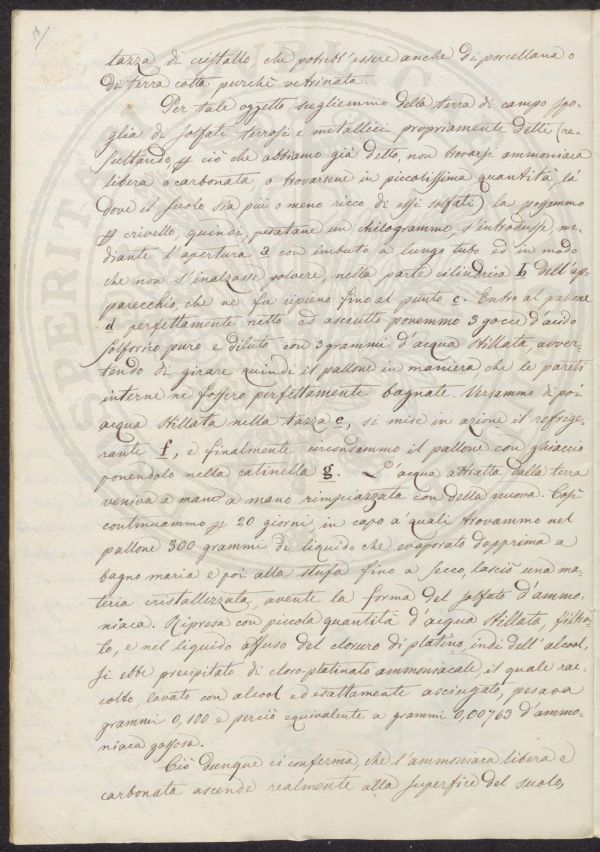 18/
tazza di cristallo, che potrebb'essere anche di porcellana o
di terra cotta purchè vetrinata.
Per tale oggetto scegliemmo della terra di campo spo-
glia di solfati terrosi e metallici propriamente detti (re-
sultando, p ciò che abbiamo già detto, non trovarsi ammoniaca
libera o carbonata, o trovarsene in piccolissima quantità, là
dove il suolo sia più o meno ricco di essi solfati) la passammo
p crivello, quindi, pesatane un chilogrammo, s'introdusse me-
diante l'apertura a con imbuto a lungo tubo ed in modo
che non s'inalzasse polvere, nella parte cilindrica b dell'ap-
parecchio, che ne fu ripieno fino al punto c. Entro al pallone
d perfettamente netto ed asciutto ponemmo 3 gocce d'acido
solforico puro e diluto con 3 grammi d'acqua stillata, avver-
tendo di girare quindi il pallone in maniera che le pareti
interne ne fossero perfettamente bagnate. Versammo di poi
acqua stillata nella tazza e, si mise in azione il refrige-
rante f, e finalmente circondammo il pallone con ghiaccio
ponendolo nella catinella g. L'acqua attratta dalla terra
veniva a mano a mano rimpiazzata con della nuova. Così
continuammo p 20 giorni, in capo a' quali trovammo nel
pallone 300 grammi di liquido che evaporato dapprima a
bagno maria e poi alla stufa fino a secco, lasciò una ma-
teria cristallizzata, avente la forma del solfato d'ammo-
niaca. Ripresa con piccola quantità d'acqua stillata, filtra-
to, e nel liquido affuso del cloruro di platino, indi dell'alcool,
si ebbe precipitato di cloro-platinato ammoniacale, il quale rac-
colto, lavato con alcool ed esattamente asciugato, pesava
grammi 0,100 e perciò equivalente a grammi 0,00763 d'ammo-
niaca gassosa.
Ciò dunque ci conferma, che l'ammoniaca libera e
carbonata ascende realmente alla superfice del suolo,